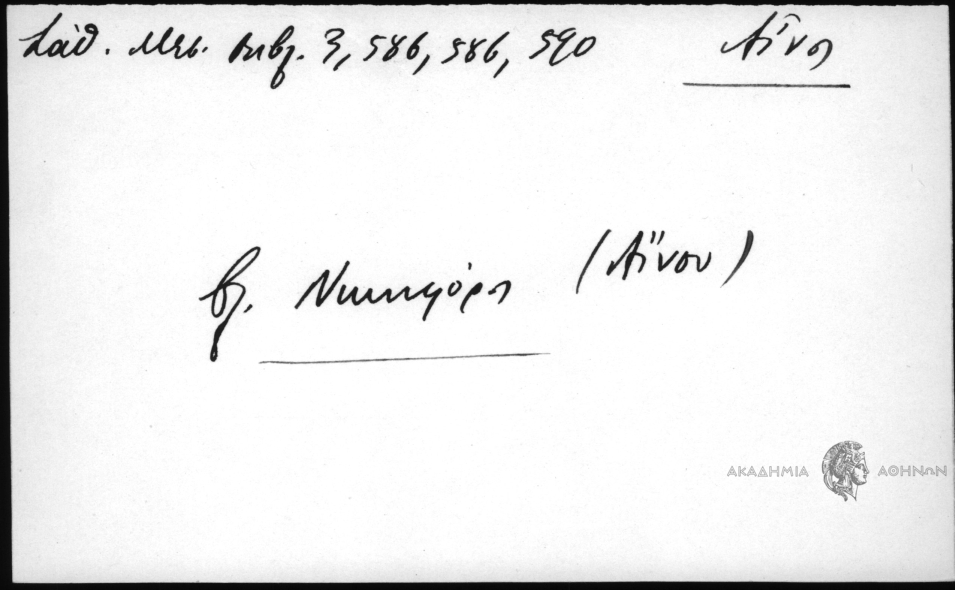 Σάθ. Μεσ. Βιβλ. 3, 586, 586, 590 Αἶνος
βλ. Νικηφόρος (Αἴνου)
ΑΚΑΔΗΜΙΑ ΑΘΗΝΩΝ